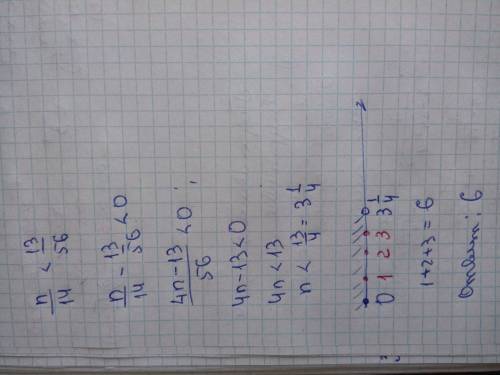 n/14 < 13/56
n/14 - 13/56 < 0
(4n-13)/56 < 0
4n-13<0
4n<13
n < 13/4 = 3 1/4
0 1 2 3 3 1/4
1+2+3=6
Ответ: 6